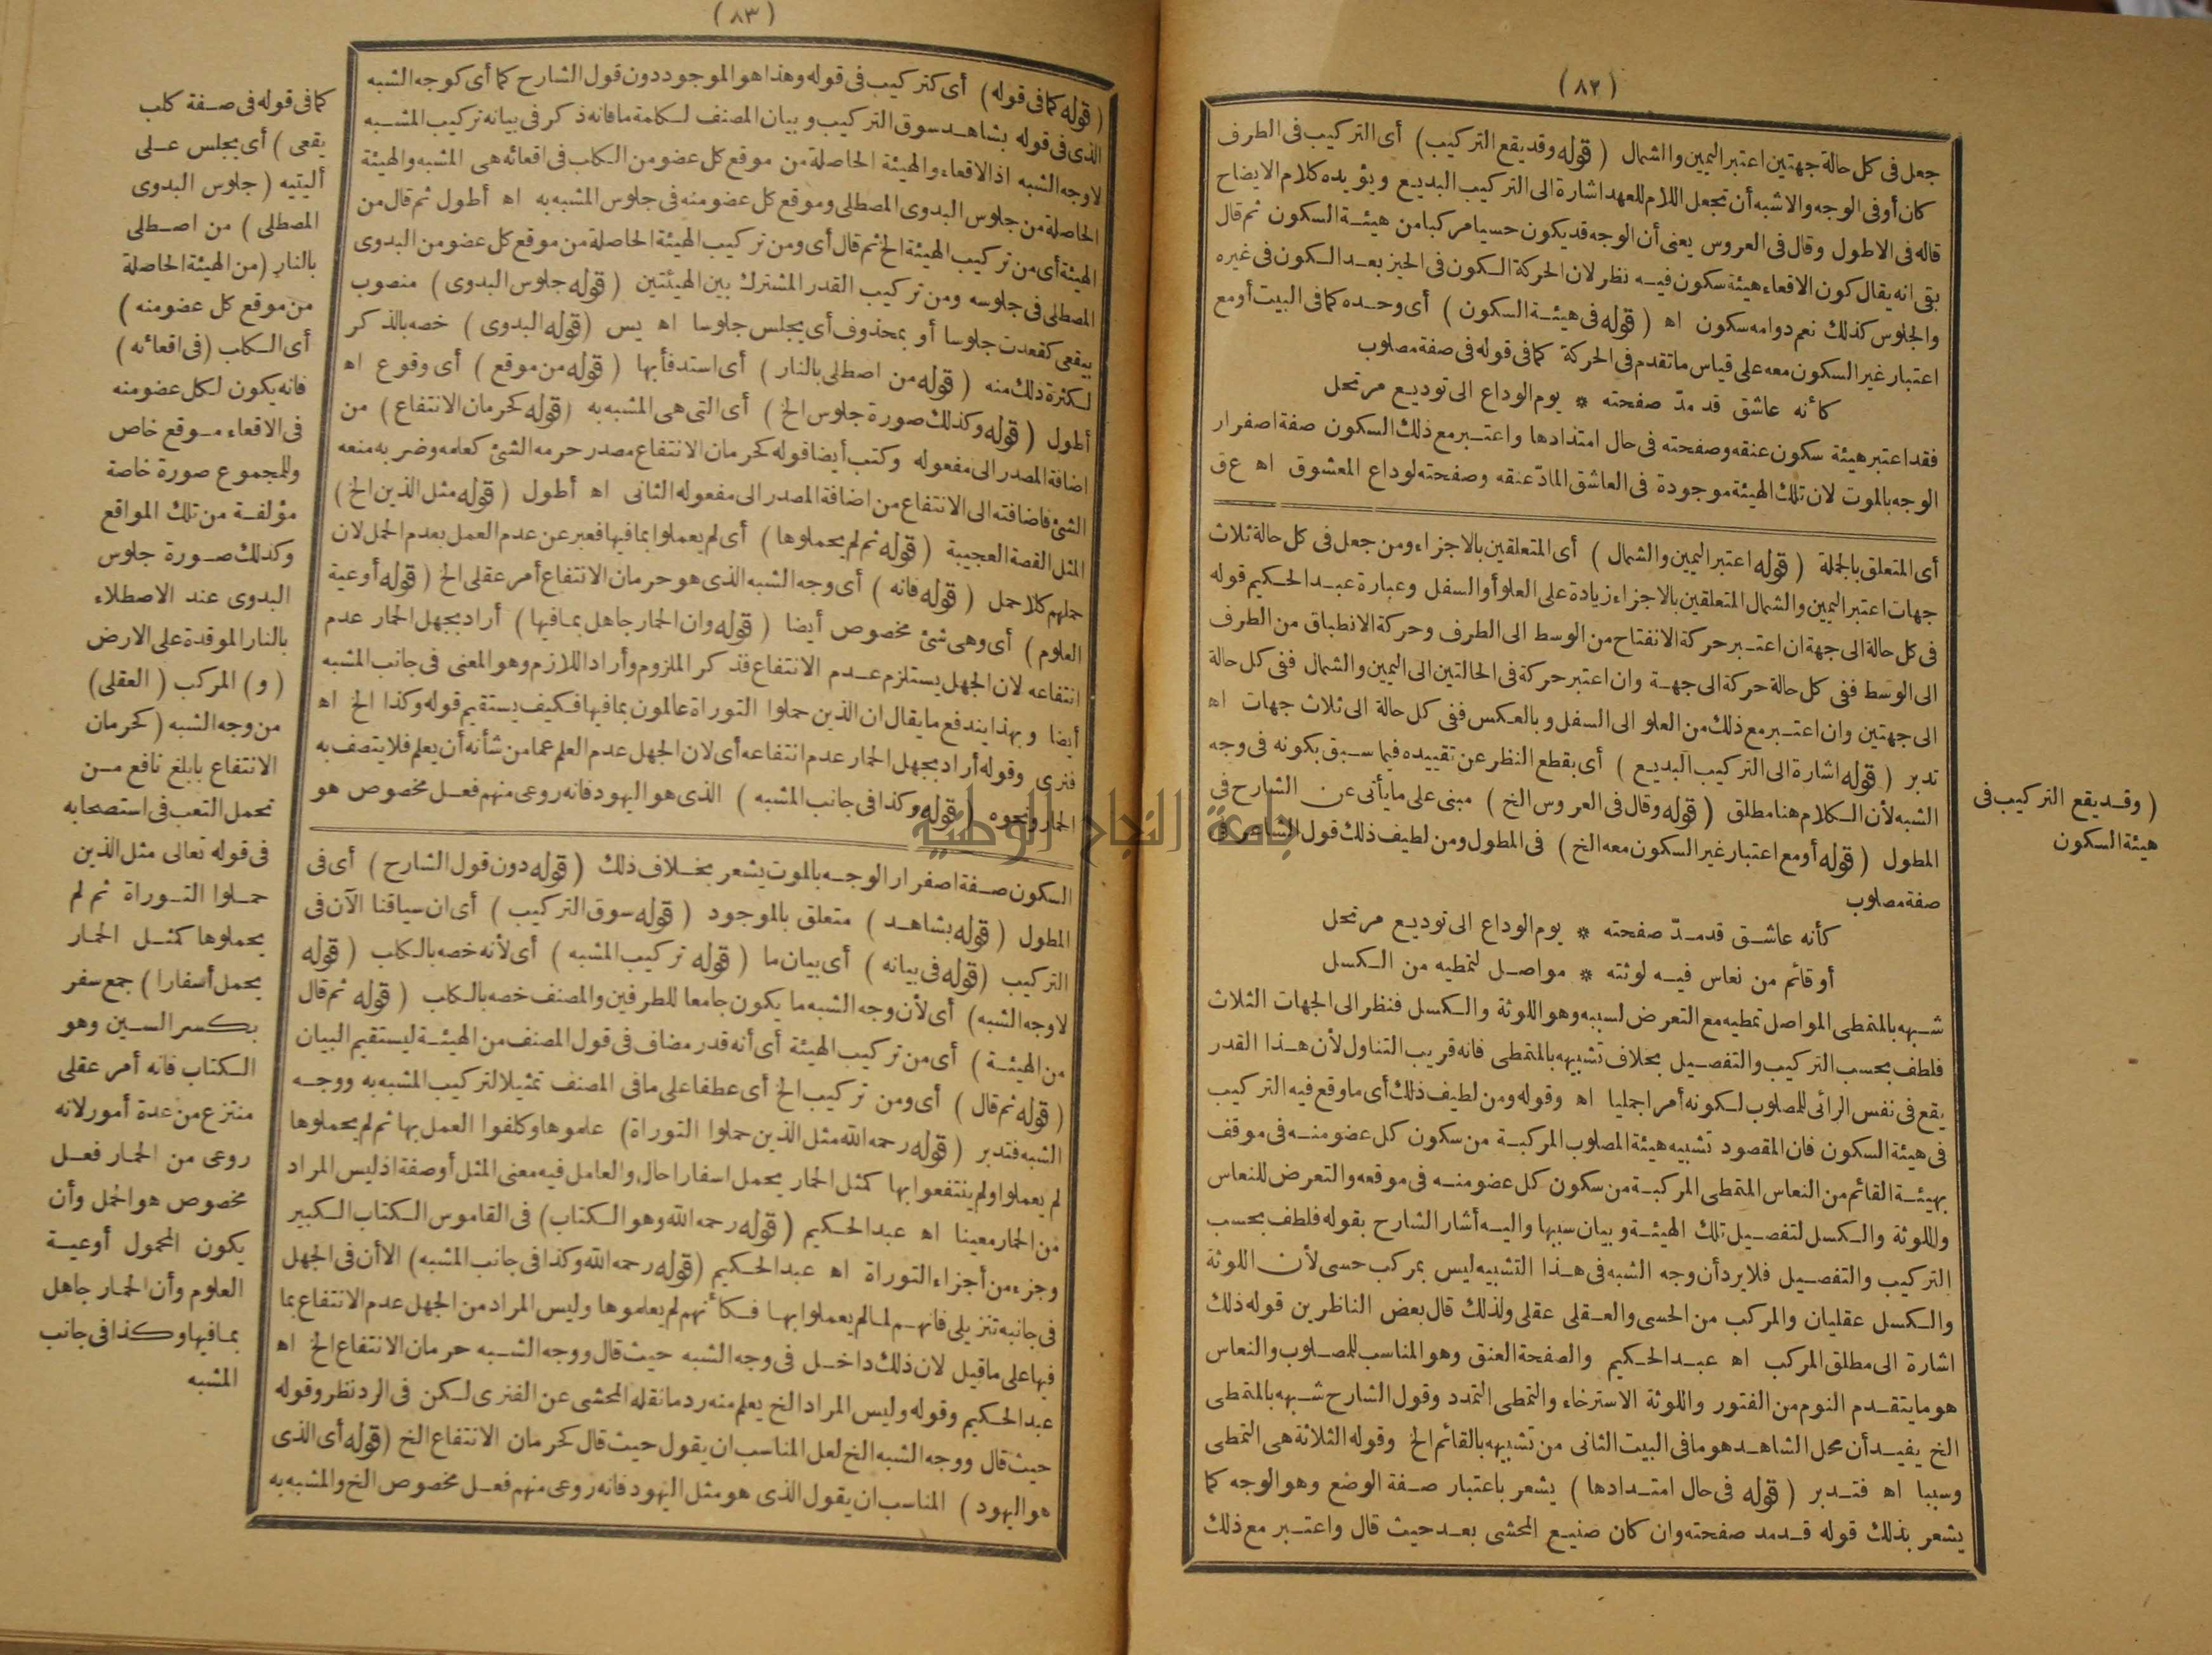 (٨٢)
جعل فى كل حالة جهتين اعتبر اليمين والشمال (قوله وقد يقع التركيب) أى التركيب فى الطرف
كان أوفى الوجه والاشبه أن تجعل اللام للعهد اشارة الى التركيب البديع ويؤيده كلام الايضاح
قاله فى الاطول وقال فى العروس يعنى أن الوجه قد يكون حسيا مركبا من هيئة السكون ثم قال
بقى انه يقال كون الاقعاء هيئة سكون فيه نظر لان الحركة السكون فى الحيز بعد السكون فى غيره
والجلوس كذلك نعم دوامه سكون اه (قوله فى هيئة السكون) أى وحده كما فى البيت أو مع
اعتبار غير السكون معه على قياس ما تقدم فى الحركة كما فى قوله فى صفة مصلوب
كأنه عاشق قد مدّ صفحته * يوم الوداع الى توديع مرتحل
فقد اعتبر هيئة سكون عنقه وصفحته فى حال امتدادها واعتبر مع ذلك السكون صفة اصفرار
الوجه بالموت لان تلك الهيئة موجودة فى العاشق المادّ عنقه وصفحته لوداع المعشوق اه ع ق
أى المتعلق بالجملة (قوله اعتبر اليمين والشمال) أى المتعلقين بالاجزاء ومن جعل فى كل حالة ثلاث
جهات اعتبر اليمين والشمال المتعلقين بالاجزاء زيادة على العلو أو السفل وعبارة عبد الحكيم قوله
فى كل حالة الى جهة ان اعتبر حركة الانفتاح من الوسط الى الطرف وحركة الانطباق من الطرف
الى الوسط ففى كل حالة حركة الى جهة وان اعتبر حركة فى الحالتين الى اليمين والشمال ففى كل حالة
الى جهتين وان اعتبر مع ذلك من العلو الى السفل وبالعكس ففى كل حالة الى ثلاث جهات اه
تدبر (قوله اشارة الى التركيب البديع) أى بقطع النظر عن تقييده فيما سبق بكونه فى وجه
الشبه لأن الكلام هنا مطلق (قوله وقال فى العروس الخ) مبنى على ما يأتى عن الشارح فى
المطول (قوله أو مع اعتبار غير السكون معه الخ) فى المطول ومن لطيف ذلك قول الشاعر فى
صفة مصلوب
كأنه عاشق قد مدّ صفحته * يوم الوداع الى توديع مرتحل
أو قائم من نعاس فيه لوثته * مواصل لتمطيه من الكسل
شبهه بالمتمطى المواصل تمطيه مع التعرض لسببه وهو اللوثة والكسل فنظر الى الجهات الثلاث
فلطف بحسب التركيب والتفصيل بخلاف تشبيهه بالمتمطى فانه قريب التناول لأن هذا القدر
يقع فى نفس الرائى للمصلوب لكونه أمر اجمليا اه وقوله ومن لطيف ذلك أى ما وقع فيه التركيب
فى هيئة السكون فان المقصود تشبيه هيئة المصلوب المركبة من سكون كل عضو منه فى موقف
بهيئة القائم من النعاس المتمطى المركبة من سكون كل عضو منه فى موقعه والتعرض للنعاس
واللوثة والكسل لتفصيل تلك الهيئة وبيان سببها واليه أشار الشارح بقوله فلطف بحسب
التركيب والتفصيل فلا يرد أن وجه الشبه فى هذا التشبيه ليس بمركب حسى لأن اللوثة
والكسل عقليان والمركب من الحسى والعقلى عقلى ولذلك قال بعض الناظرين قوله ذلك
اشارة الى مطلق المركب اه عبد الحكيم والصفحة العنق وهو المناسب للمصلوب والنعاس
هو ما يتقدم النوم من الفتور واللوثة الاسترخاء والتمطى التمدد وقول الشارح شبهه بالمتمطى
الخ يفيد أن محل الشاهد هو ما فى البيت الثانى من تشبيهه بالقائم الخ وقوله الثلاثة هى التمطى
وسببا اه فتدبر (قوله فى حال امتدادها) يشعر باعتبار صفة الوضع وهو الوجه كما
يشعر بذلك قوله قد مد صفحته وان كان صنيع المحشى بعد حيث قال واعتبر مع ذلك
(وقد يقع التركيب فى
هيئة السكون
(٨٣)
(قوله كما فى قوله) أى كتركيب فى قوله وهذا هو الموجود دون قول الشارح كما أى كوجه الشبه
الذى فى قوله بشاهد سوق التركيب وبيان المصنف لكلمة ما فانه ذكر فى بيانه تركيب المشبه
لا وجه الشبه اذ الاقعاء والهيئة الحاصلة من موقع كل عضو من الكلب فى اقعائه هى المشبه والهيئة
الحاصلة من جلوس البدوى المصطلى وموقع كل عضو منه فى جلوس المشبه به اه أطول ثم قال من
الهيئة أى من تركيب الهيئة الخ ثم قال أى ومن تركيب الهيئة الحاصلة من موقع كل عضو من البدوى
المصطلى فى جلوسه ومن تركيب القدر المشترك بين الهيئتين (قوله جلوس البدوى) منصوب
بيقعى كقعدت جلوسا أو بمحذوف أى يجلس جلوسا اه يس (قوله البدوى) خصه بالذكر
لكثرة ذلك منه (قوله من اصطلى بالنار) أى استدفأ بها (قوله من موقع) أى وقوع اه
أطول (قوله وكذلك صورة جلوس الخ) أى التى هى المشبه به (قوله كحرمان الانتفاع) من
اضافة المصدر الى مفعوله وكتب أيضا قوله كحرمان الانتفاع مصدر حرمه الشئ كعلمه وضربه منعه
الشئ فاضافته الى الانتفاع من اضافة المصدر الى مفعوله الثانى اه أطول (قوله مثل الذين الخ)
المثل القصة العجيبة (قوله ثم لم يحملوها) أى لم يعملوا بما فيها فعبر عن عدم العمل بعدم الحمل لان
حملهم كلا حمل (قوله فانه) أى وجه الشبه الذى هو حرمان الانتفاع أمر عقلى الخ (قوله أوعية
العلوم) أى وهى شئ مخصوص أيضا (قوله وان الحمار جاهل بما فيها) أراد بجهل الحمار عدم
انتفاعه لان الجهل يستلزم عدم الانتفاع فذكر الملزوم وأراد اللازم وهو المعنى فى جانب المشبه
أيضا وبهذا يندفع ما يقال ان الذين حملوا التوراة عالمون بما فيها فكيف يستقيم قوله وكذا الخ اه
فنرى وقوله أراد بجهل الحمار عدم انتفاعه أى لان الجهل عدم العلم عما من شأنه أن يعلم فلا يتصف به
الحمار ونحوه (قوله وكذا فى جانب المشبه) الذى هو اليهود فانه روعى منهم فعل مخصوص هو
السكون صفة اصفرار الوجه بالموت يشعر بخلاف ذلك (قوله دون قول الشارح) أى فى
المطول (قوله بشاهد) متعلق بالموجود (قوله سوق التركيب) أى ان سياقنا الآن فى
التركيب (قوله فى بيانه) أى بيان ما (قوله تركيب المشبه) أى لأنه خصه بالكلب (قوله
لا وجه الشبه) أى لأن وجه الشبه ما يكون جامعا للطرفين والمصنف خصه بالكلب (قوله ثم قال
من الهيئة) أى من تركيب الهيئة أى أنه قدر مضاف فى قول المصنف من الهيئة ليستقيم البيان
(قوله ثم قال) أى ومن تركيب الخ أى عطفا على ما فى المصنف تمثيلا لتركيب المشبه به ووجه
الشبه فتدبر (قوله رحمه الله مثل الذين حملوا التوراة) علموها وكلفوا العمل بها ثم لم يحملوها
لم يعملوا ولم ينتفعوا بها كمثل الحمار يحمل اسفارا حال والعامل فيه معنى المثل أو صفة اذ ليس المراد
من الحمار معينا اه عبد الحكيم (قوله رحمه الله وهو الكتاب) فى القاموس الكتاب الكبير
وجزء من أجزاء التوراة اه عبد الحكيم (قوله رحمه الله وكذا فى جانب المشبه) الا أن فى الجهل
فى جانبه تنزيلى فانهم لما لم يعملوا بها فكأنهم لم يعلموها وليس المراد من الجهل عدم الانتفاع بما
فيها على ما قيل لان ذلك داخل فى وجه الشبه حيث قال ووجه الشبه حرمان الانتفاع الخ اه
عبد الحكيم وقوله وليس المراد الخ يعلم منه رد ما نقله المحشى عن الفنرى لكن فى الرد نظر وقوله
حيث قال ووجه الشبه الخ لعل المناسب ان يقول حيث قال كحرمان الانتفاع الخ (قوله أى الذى
هو اليهود) المناسب ان يقول الذى هو مثل اليهود فانه روعى منهم فعل مخصوص الخ والمشبه به
كما فى قوله فى صفة كلب
يقعى) أى يجلس على
أليتيه (جلوس البدوى
المصطلى) من اصطلى
بالنار (من الهيئة الحاصلة
من موقع كل عضو منه)
أى الكلب (فى اقعائه)
فانه يكون لكل عضو منه
فى الاقعاء موقع خاص
وللمجموع صورة خاصة
مؤلفة من تلك المواقع
وكذلك صورة جلوس
البدوى عند الاصطلاء
بالنار الموقدة على الارض
(و) المركب (العقلى)
من وجه الشبه (كحرمان
الانتفاع بابلغ نافع من
تحمل التعب فى استصحابه
فى قوله تعالى مثل الذين
حملوا التوراة ثم لم
يحملوها كمثل الحمار
يحمل أسفارا) جمع سفر
بكسر السين وهو
الكتاب فانه أمر عقلى
منتزع من عدة أمور لانه
روعى من الحمار فعل
مخصوص هو الحمل وأن
يكون المحمول أوعية
العلوم وأن الحمار جاهل
بما فيها وكذا فى جانب
المشبه
جامعة النجاح الوطنية